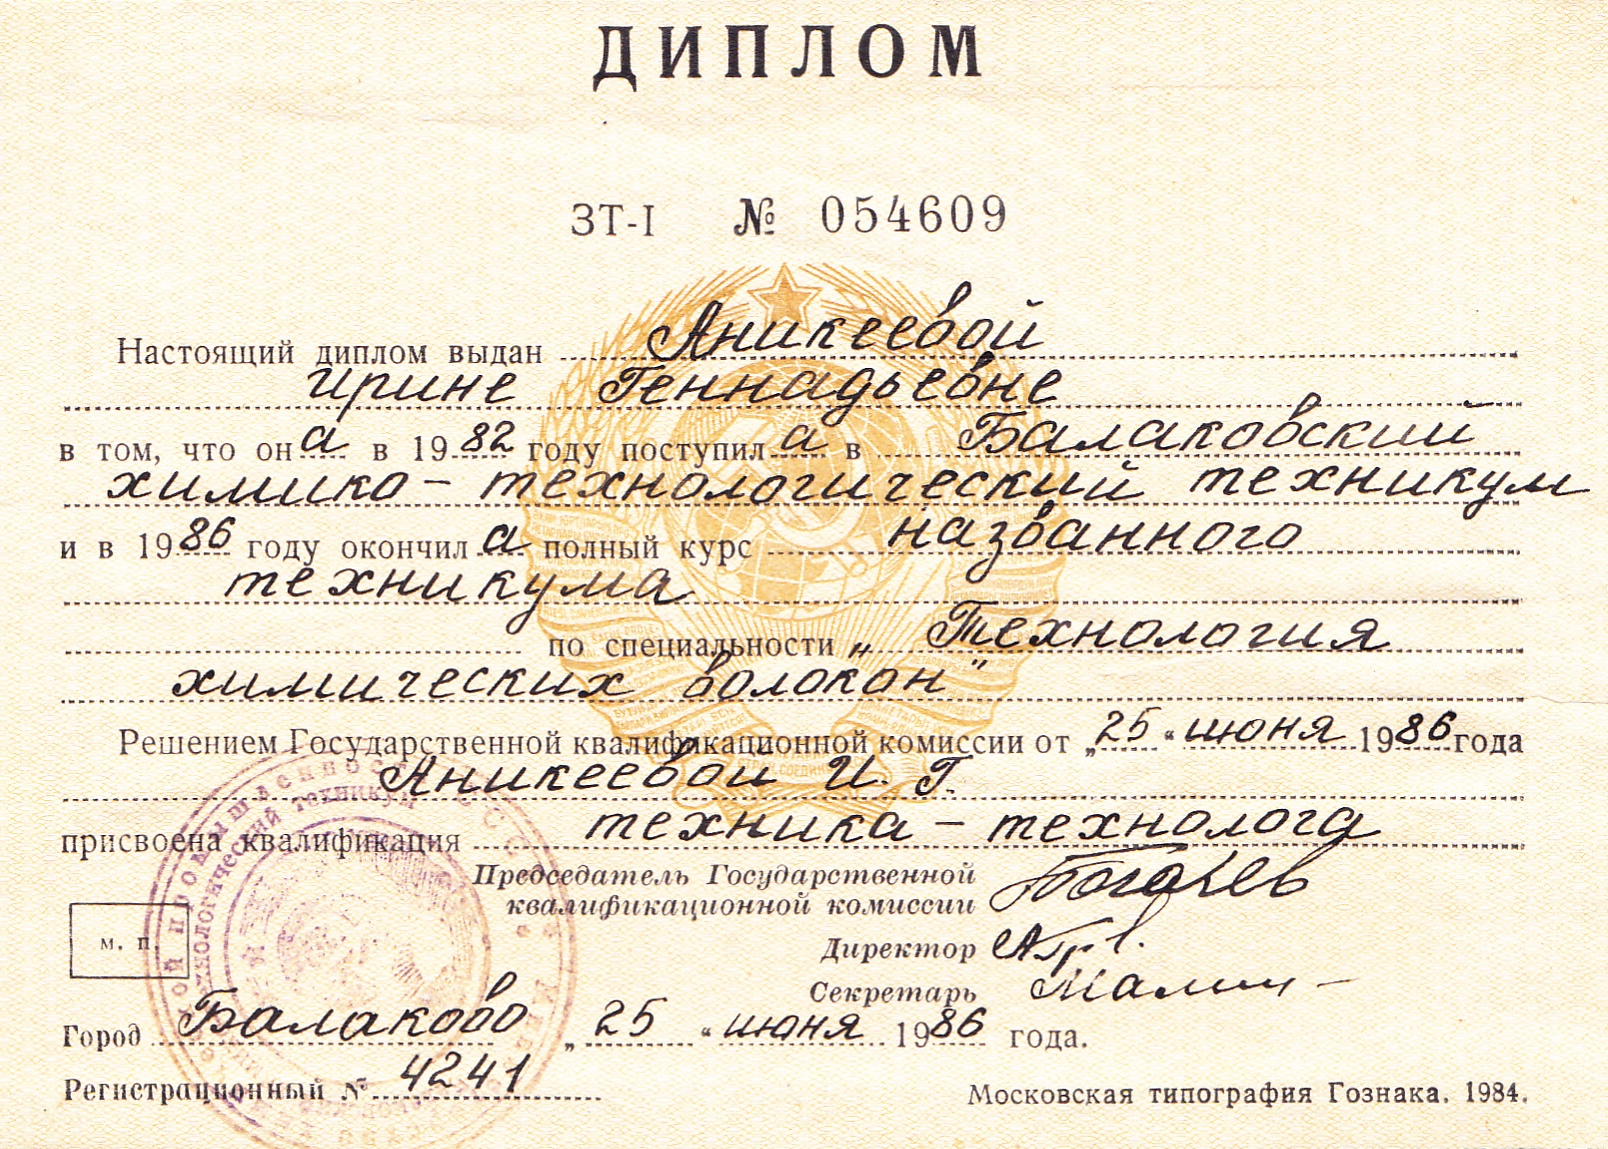 ДИПЛОМ
ЗТ-I № 054609
Настоящий диплом выдан Аникеевой
Ирине Геннадьевне
в том, что она в 1982 году поступила в Балаковский
химико-технологический техникум
и в 1986 году окончила полный курс названного
техникума
по специальности „Технология
химических волокон"
Решением Государственной квалификационной комиссии от „25“ июня 1986 года
Аникеевой И. Г.
присвоена квалификация техника-технолога
Председатель Государственной
квалификационной комиссии
Директор
м. п.
Секретарь
Город Балаково „25“ июня 1986 года.
Регистрационный № 4241
Московская типография Гознака. 1984.